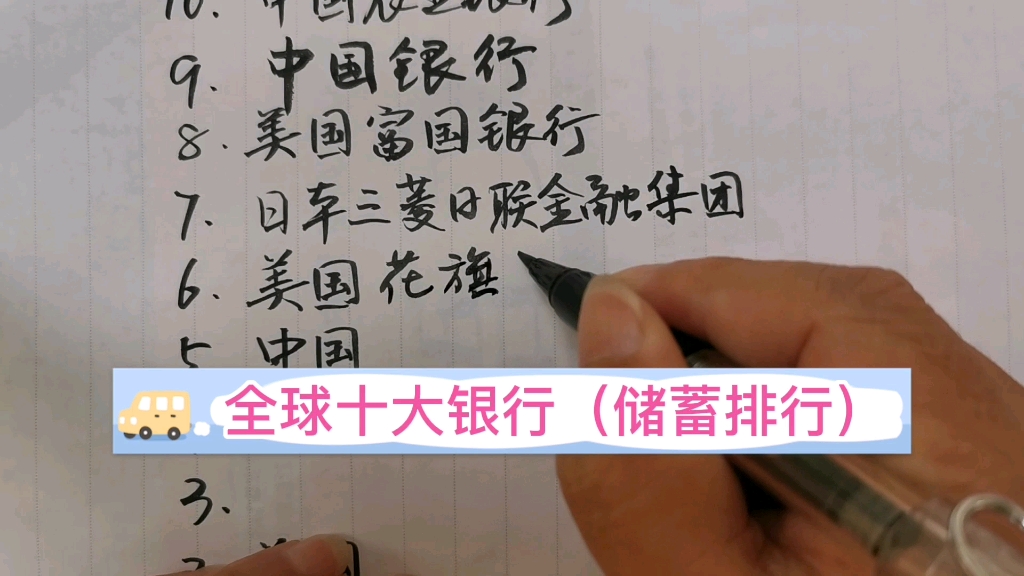 10. 中国农业银行
9. 中国银行
8. 美国富国银行
7. 日本三菱日联金融集团
6. 美国花旗
5 中国
全球十大银行（储蓄排行）
3.
2